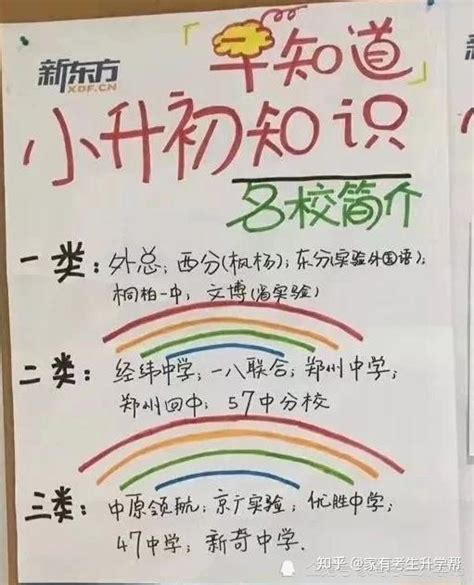 新东方
XDF.CN
「早知道」
小升初知识
名校简介
一类：外总；西分(枫杨)；东分(实验外国语)；
桐柏一中；文博(省实验)
二类：经纬中学；一八联合；郑州中学；
郑州四中；57中分校
三类：中原领航；京广实验；优胜中学；
47中学；新奇中学.
知乎 @家有考生升学帮